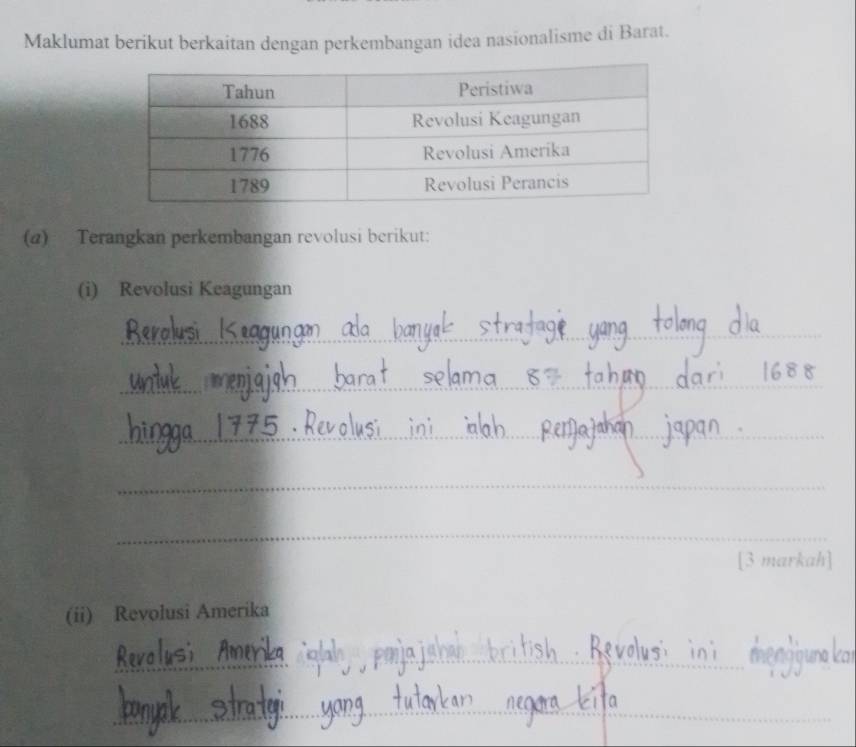 Maklumat berikut berkaitan dengan perkembangan idea nasionalisme di Barat.
Tahun Peristiwa
1688 Revolusi Keagungan
1776 Revolusi Amerika
1789 Revolusi Perancis
(a) Terangkan perkembangan revolusi berikut:
(i) Revolusi Keagungan
Revolusi Keagungan ada banyak stratage yang tolong dia
untuk menjajah barat selama 87 tahun dari 1688
hingga 1775. Revolusi ini ialah penjajahan japan.
[3 markah]
(ii) Revolusi Amerika
Revolusi Amerika ialah, penjajahan british. Revolusi ini menggunakan
banyak strategi yang tutarkan negara kita